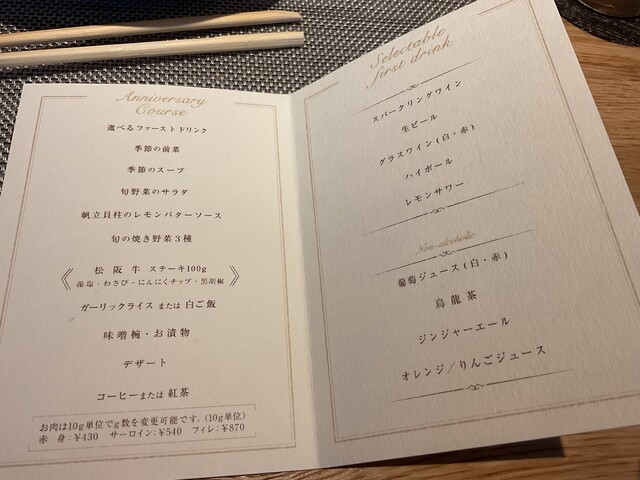 Anniversary
Course
選べるファーストドリンク
季節の前菜
季節のスープ
旬野菜のサラダ
帆立貝柱のレモンバターソース
旬の焼き野菜3種
松阪牛 ステーキ100g
藻塩・わさび・にんにくチップ・黒胡椒
ガーリックライス または 白ご飯
味噌椀・お漬物
デザート
コーヒーまたは 紅茶
お肉は10g単位でg数を変更可能です。(10g単位)
赤 身:¥430 サーロイン:¥540 フィレ:¥870
Selectable
first drink
スパークリングワイン
生ビール
グラスワイン(白・赤)
ハイボール
レモンサワー
Non-alcoholic
葡萄ジュース(白・赤)
烏龍茶
ジンジャーエール
オレンジ/りんごジュース